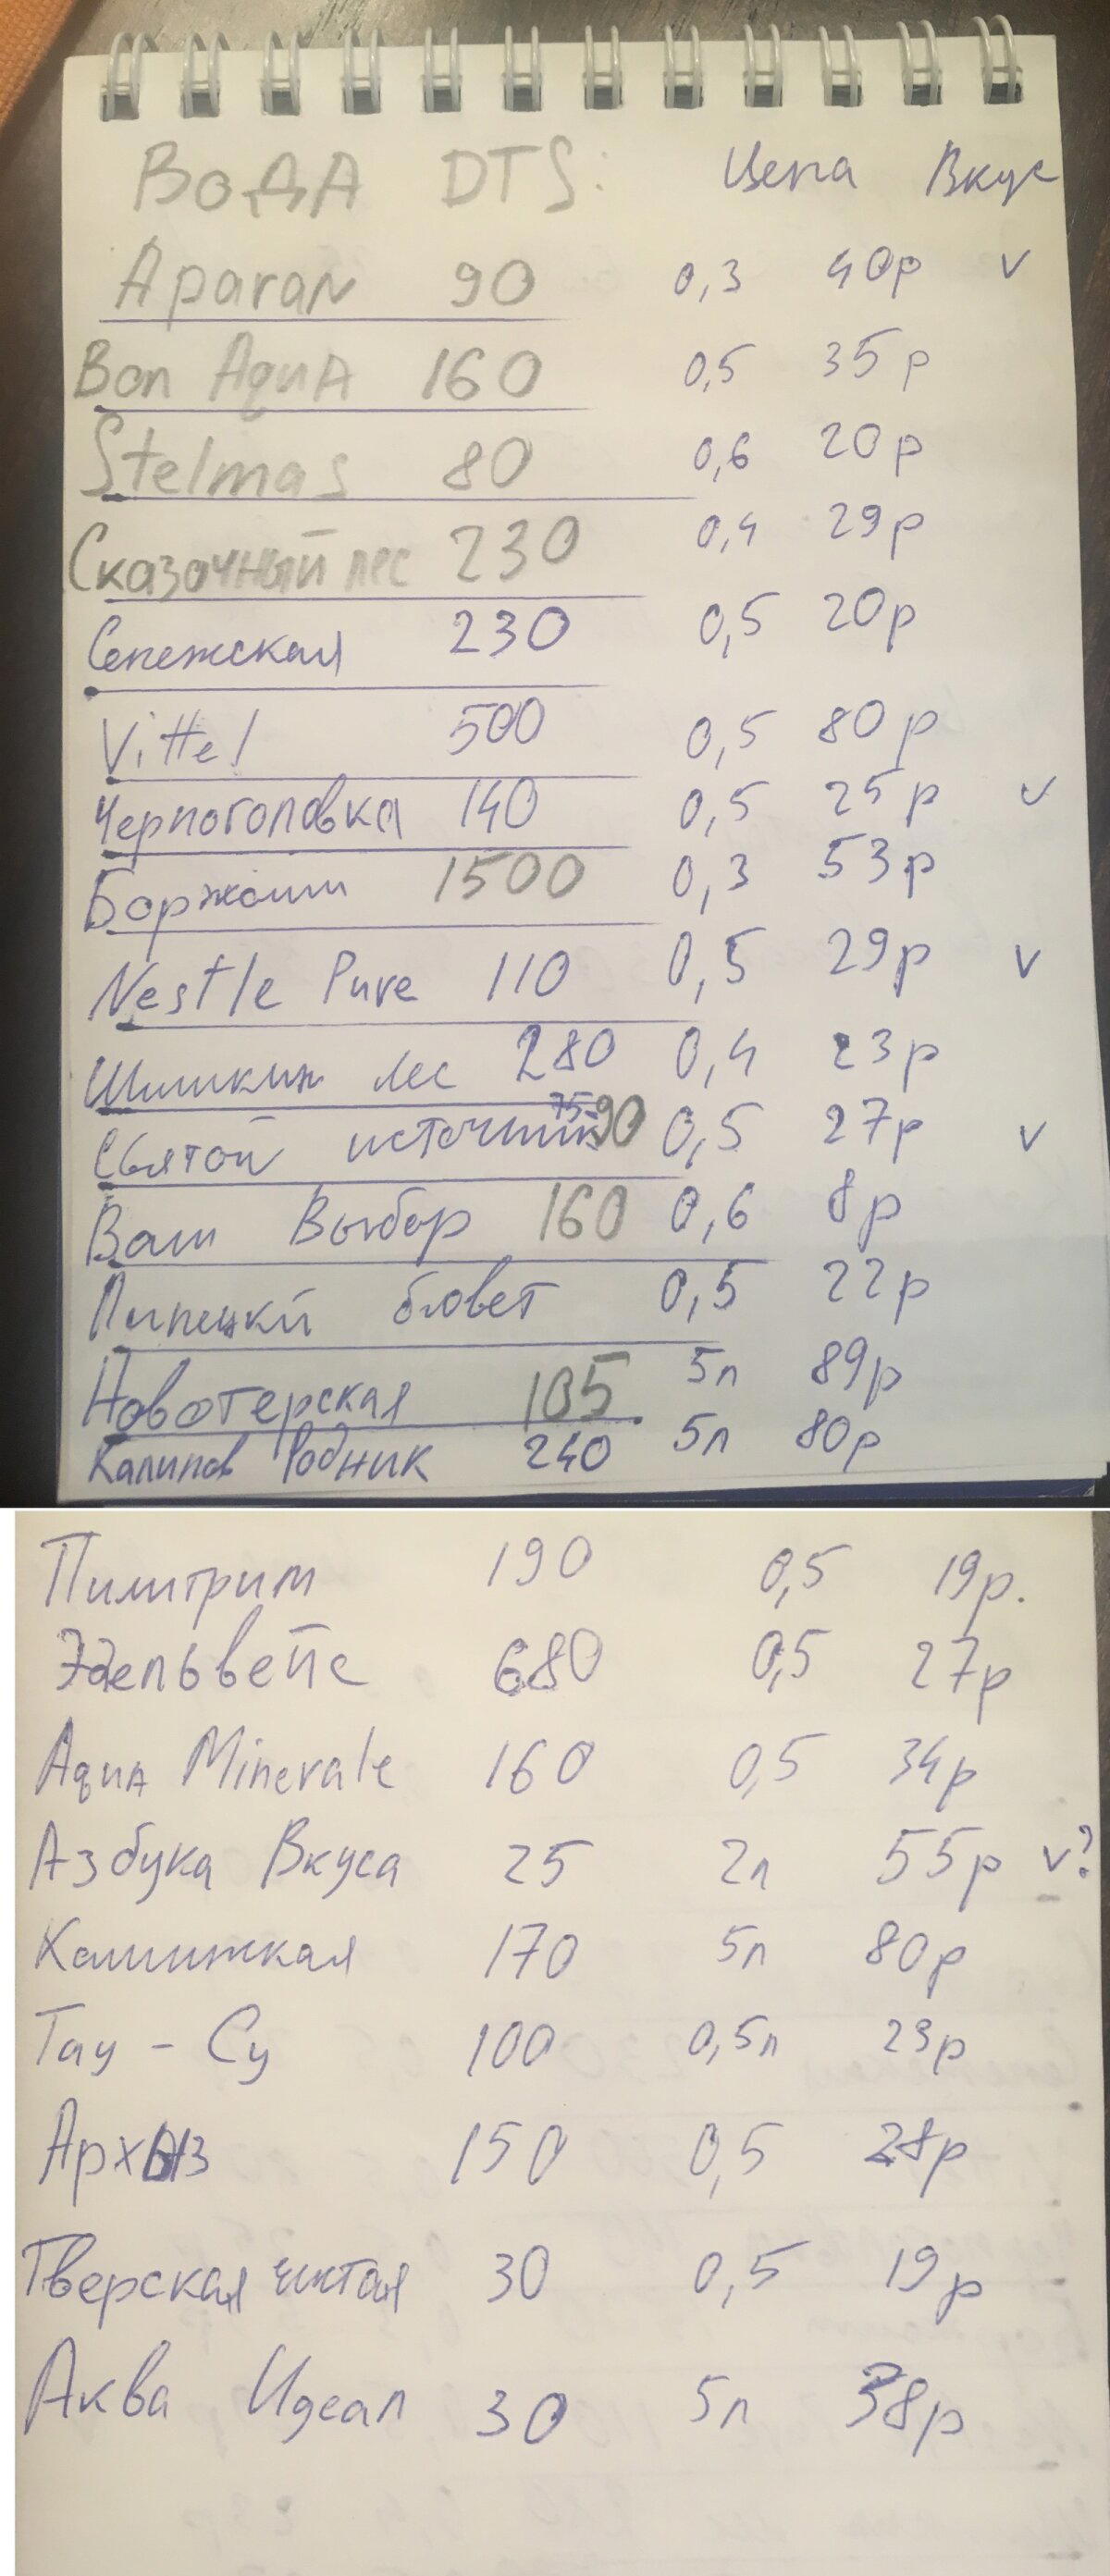 Вода DTS: Цена Вкус
Aparan 90 0,3 40р v
Bon Aqua 160 0,5 35р
Stelmas 80 0,6 20р
Сказочный лес 230 0,4 29р
Сенежская 230 0,5 20р
Vittel 500 0,5 80р
Черноголовка 140 0,5 25р v
Боржоми 1500 0,3 53р
Nestle Pure 110 0,5 29р v
Шишкин лес 280 0,4 23р
Святой источник 75-90 0,5 27р v
Ваш Выбор 160 0,6 8р
Липецкий бювет 0,5 22р
Новотерская 105 5л 89р
Калинов Родник 240 5л 80р
Пилигрим 190 0,5 19р.
Эдельвейс 680 0,5 27р
Aqua Minerale 160 0,5 34р
Азбука Вкуса 25 2л 55р v?
170 5л 80р
Тау - Су 100 0,5л 23р
Архыз 150 0,5 28р
Тверская чистая 30 0,5 19р
Аква Идеал 30 5л 58р